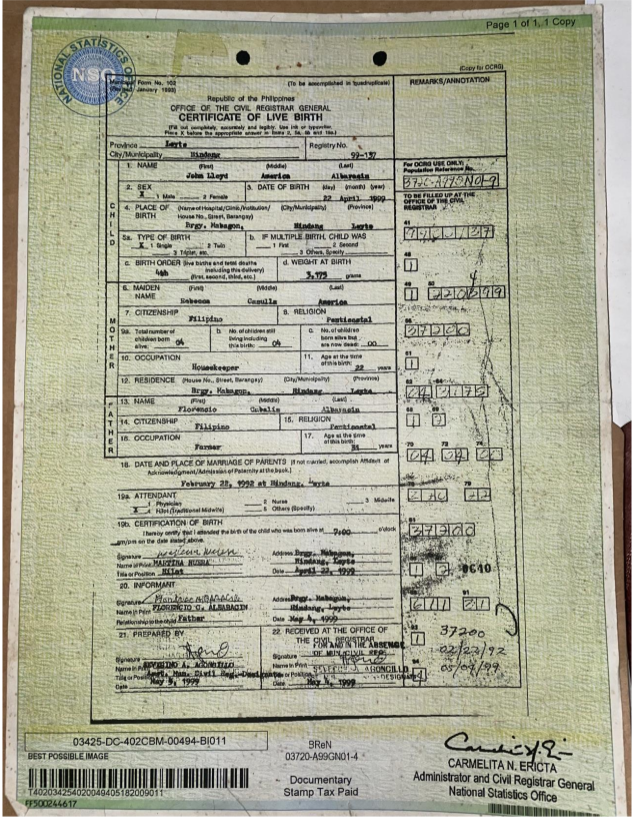 Page 1 of 1, 1 Copy
NATIONAL STATISTICS OFFICE
NSO
Municipal Form No. 102
(Revised January 1993)
(To be accomplished in quadruplicate)
(Copy for OCRG)
REMARKS/ANNOTATION
Republic of the Philippines
OFFICE OF THE CIVIL REGISTRAR GENERAL
CERTIFICATE OF LIVE BIRTH
(Fill out completely, accurately and legibly. Use ink or typewriter.
Place X before the appropriate answer in Items 2, 5a, 5b and 19a.)
Province Leyte
Registry No.
City/Municipality Hindang
99-137
For OCRG USE ONLY:
Population Reference No.
TO BE FILLED UP AT THE
OFFICE OF THE CIVIL
REGISTRAR
CHILD
1. NAME (First) (Middle) (Last)
John Lloyd America Albarasin
2. SEX
X 1 Male 2 Female
3. DATE OF BIRTH (day) (month) (year)
22 April 1999
4. PLACE OF BIRTH (Name of Hospital/Clinic/Institution/ (City/Municipality) (Province)
House No., Street, Barangay)
Brgy. Mabagon, Hindang Leyte
5a. TYPE OF BIRTH
X 1 Single 2 Twin
3 Triplet, etc.
b. IF MULTIPLE BIRTH, CHILD WAS
1 First 2 Second
3 Others, Specify
c. BIRTH ORDER (live births and fetal deaths
including this delivery)
4th
(first, second, third, etc.)
d. WEIGHT AT BIRTH
3,175 grams
MOTHER
6. MAIDEN NAME (First) (Middle) (Last)
Rebecca America
7. CITIZENSHIP
Filipino
8. RELIGION
Penticostal
9a. Total number of
children born
alive: 04
b. No. of children still
living including
this birth: 04
c. No. of children
born alive but
are now dead: 00
10. OCCUPATION
Housekeeper
11. Age at the time
of this birth:
22 years
12. RESIDENCE (House No., Street, Barangay) (City/Municipality) (Province)
Brgy. Mabagon, Hindang Leyte
FATHER
13. NAME (First) (Middle) (Last)
Florencio Albarasin
14. CITIZENSHIP
Filipino
15. RELIGION
Penticostal
16. OCCUPATION
Farmer
17. Age at the time
of this birth:
years
18. DATE AND PLACE OF MARRIAGE OF PARENTS (if not married, accomplish Affidavit of
Acknowledgment/Admission of Paternity at the back.)
February 22, 1992 at Hindang, Leyte
19a. ATTENDANT
1 Physician 2 Nurse 3 Midwife
X 4 Hilot (Traditional Midwife) 5 Others (Specify)
19b. CERTIFICATION OF BIRTH
I hereby certify that I attended the birth of the child who was born alive at 7:00 o'clock
am/pm on the date stated above.
Signature
Address Brgy. Mabagon,
Name in Print MARTINA
Hindang, Leyte
Title or Position Hilot
Date April 22, 1999
0640
20. INFORMANT
Signature
Address Brgy. Mabagon,
Name in Print FLORENCIO C. ALBARACIN
Hindang, Leyte
Relationship to the child Father
Date May 4, 1999
21. PREPARED BY
Signature
Name in Print SEVERINO A. AGRONCILLO
Title or Position Asst. Mun. Civil Reg.-Designate
Date May 5, 1999
22. RECEIVED AT THE OFFICE OF
THE CIVIL REGISTRAR
FOR AND IN THE ABSENCE
OF MUN. CIVIL REG.
Signature
Name in Print AGRONCILLO
Title or Position DESIGNATE
Date May 4, 1999
37200
02/22/92
05/04/99
03425-DC-402CBM-00494-BI011
BEST POSSIBLE IMAGE
T402034254020049405182009011
FF500244617
BReN
03720-A99GN01-4
Documentary
Stamp Tax Paid
CARMELITA N. ERICTA
Administrator and Civil Registrar General
National Statistics Office